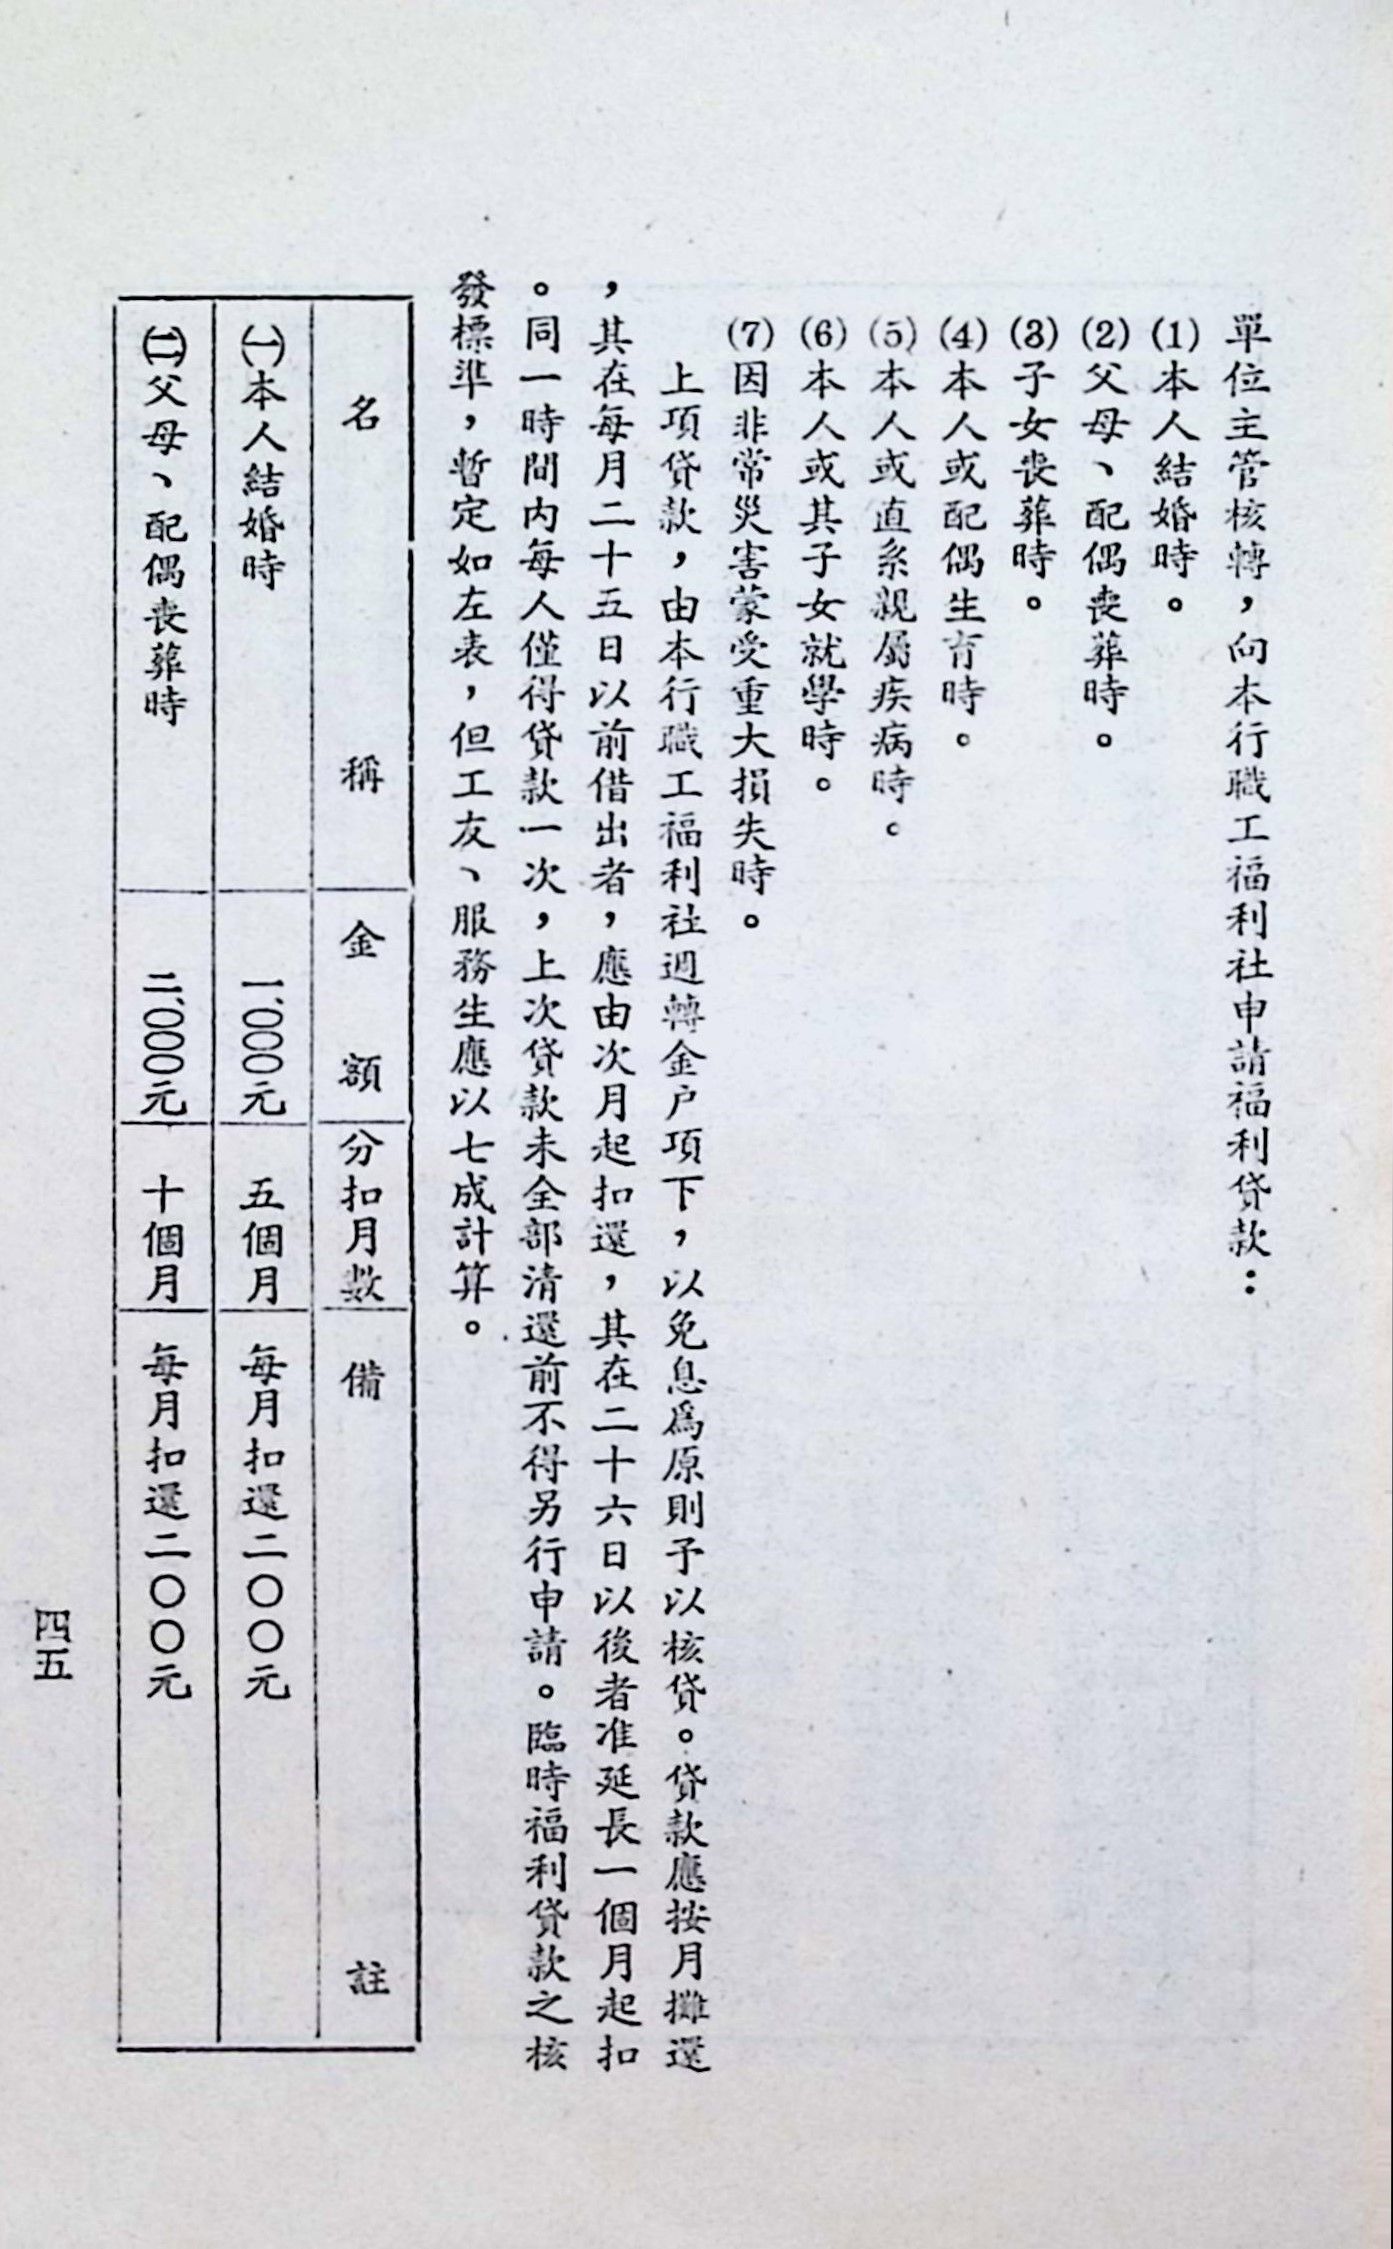 單位主管核轉，向本行職工福利社申請福利貸款：
(1)本人結婚時。
(2)父母、配偶喪葬時。
(3)子女喪葬時。
(4)本人或配偶生育時。
(5)本人或直系親屬疾病時。
(6)本人或其子女就學時。
(7)因非常災害蒙受重大損失時。
上項貸款，由本行職工福利社週轉金戶項下，以免息爲原則予以核貸。貸款應按月攤還
，其在每月二十五日以前借出者，應由次月起扣還，其在二十六日以後者准延長一個月起扣
。同一時間內每人僅得貸款一次，上次貸款未全部清還前不得另行申請。臨時福利貸款之核
發標準，暫定如左表，但工友、服務生應以七成計算。
名稱 金額 分扣月數 備註
㈠本人結婚時 一、〇〇〇元 五個月 每月扣還二〇〇元
㈡父母、配偶喪葬時 二、〇〇〇元 十個月 每月扣還二〇〇元
四五